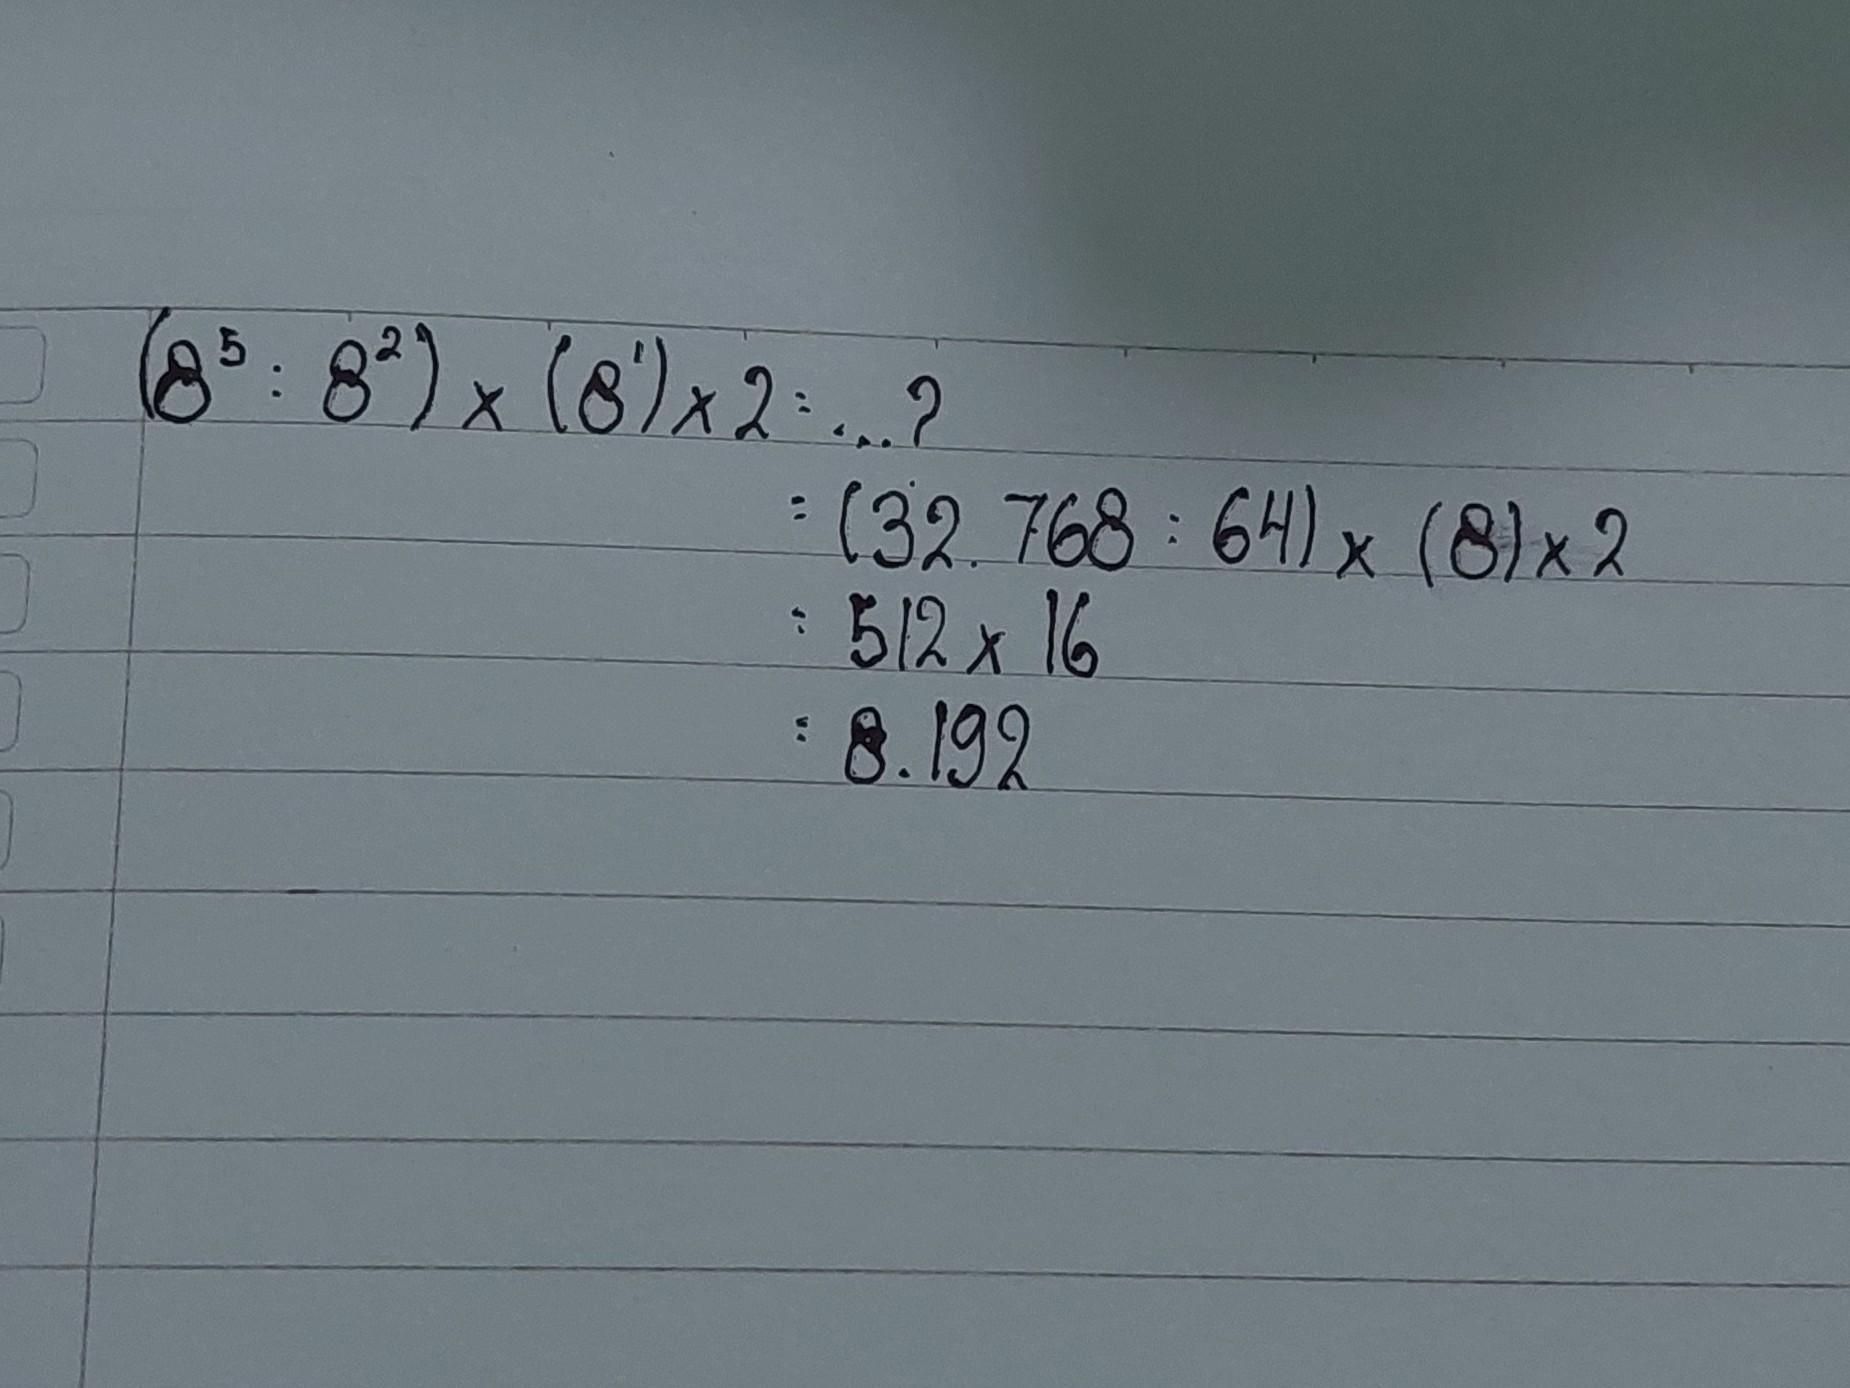 (8⁵ : 8²) x (8¹) x 2 = ...?
= (32.768 : 64) x (8) x 2
= 512 x 16
= 8.192